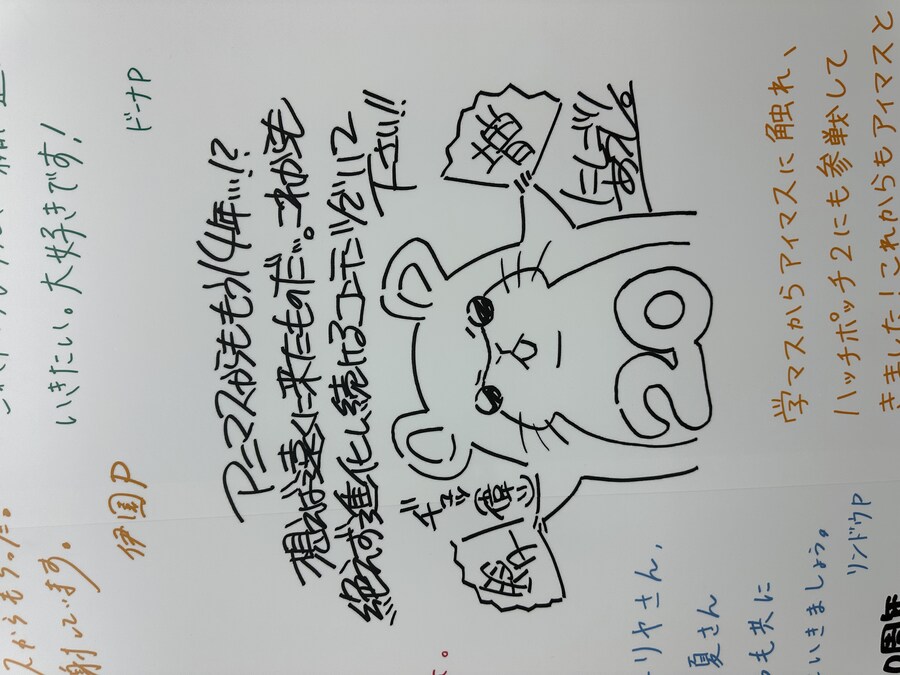 いきたい。大好きです!
ドーナP
射しています。
伊国P
アニマスからももう14年…!?
想えば遠くに来たものだ…。これからも
絶えず進化し続けるコンテンツでいて
下さい!!
20
学マスからアイマスに触れ、
ハッチポッチ2にも参戦して
きました!これからもアイマスと
リヤさん、
夏さん
も共に
いきましょう。
リンドウP
0周年